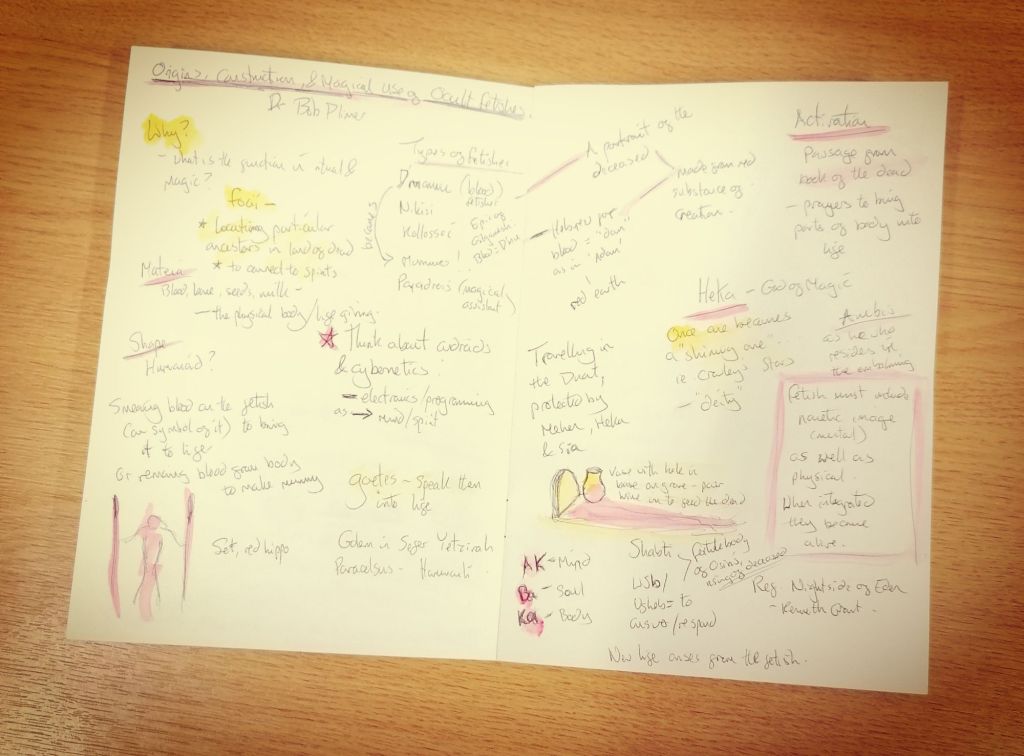 Origins, Construction, & Magical use of Occult Fetishes.
Dr Bob Plimer
Why?
- what is the function in ritual &
magic?
foci -
* Locating particular
ancestors in land of dead
* to connect to spirits
Materia
Blood, bone, seeds, milk -
- the physical body / life giving.
Shape
Humanoid?
Smearing blood on the fetish
(or symbol of it) to bring
it to life
Or removing blood from body
to make mummy
Set, red hippo
Types of fetishes
(blood)
fetishes
Nikisi
Kollossoi
Epic of
Gilgamesh
Blood =
becomes
Mummies!
(magical
assistant)
Think about androids
& cybernetics.
- electronics/programming
as → mind/spirit
goetes - speak them
into life
Golem in Sefer Yetzirah
Paracelsus - Homunculi
A portrait of the
diseased
made from red
substance of
creation.
- Hebrew for
blood = "dam"
as in 'Adam'
red earth
Travelling in
the Duat,
protected by
Mehen, Heka
& Sia
vase with hole in
base on grave - pour
wine on to feed the dead
AK - Mind
Ba - Soul
Ka - Body
Shabti
of Osiris,
of deceased
Usheb = to
answer/respond
New life arises from the fetish.
Activation
Passage from
book of the dead
- prayers to bring
parts of body into
life
Heka - God of Magic
Once one becomes
a "shining one"...
ie Crowley's Stars
- "deity"
Anubis
as he who
resides in
the embalming
Fetish must include
noetic image
(mental)
as well as
physical.
When integrated
they become
alive.
Ref. Nightside of Eden
- Kenneth Grant.